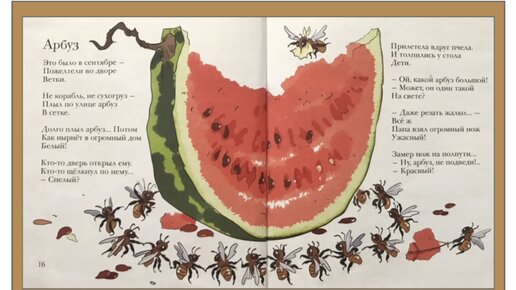 Арбуз
Это было в сентябре –
Пожелтели во дворе
Ветки.
Не корабль, не сухогруз –
Плыл по улице арбуз
В сетке.
Долго плыл арбуз... Потом
Как нырнёт в огромный дом
Белый!
Кто-то дверь открыл ему.
Кто-то щёлкнул по нему...
– Спелый?
16
Прилетела вдруг пчела.
И толпились у стола
Дети.
– Ой, какой арбуз большой!
– Может, он один такой
На свете?
– Даже резать жалко... –
Всё ж
Папа взял огромный нож
Ужасный!
Замер нож на полпути...
– Ну, арбуз, не подведи!..
– Красный!